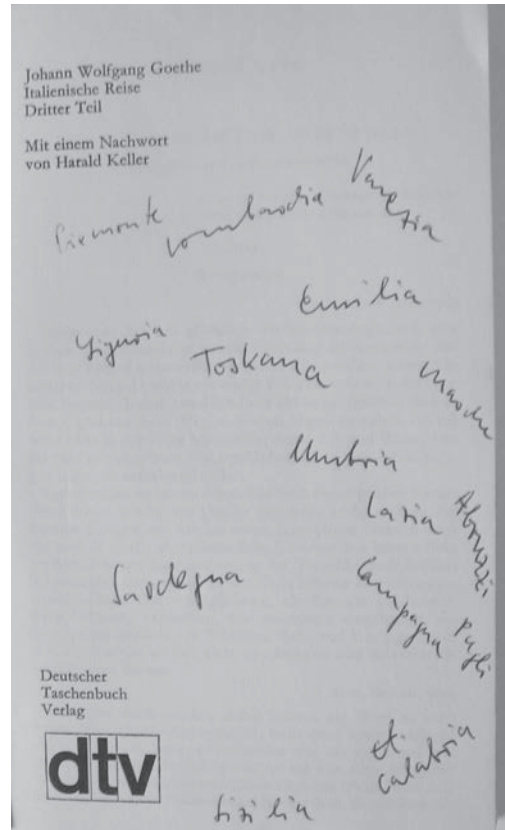 Johann Wolfgang Goethe
Italienische Reise
Dritter Teil
Mit einem Nachwort
von Harald Keller
Piemonte
Lombardia
Venezia
Emilia
Liguria
Toskana
Marche
Umbria
Lazia
Abruzzi
Sardegna
Campagna
Pugli
Deutscher
Taschenbuch
Verlag
dtv
et.
Calabria
Sizilia